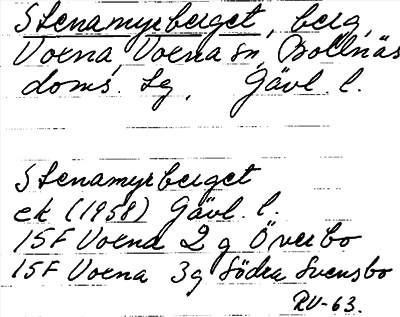 Stenamyrberget, berg,
Voxna, Voxna sn, Bollnäs
doms. Lg, Gävl. l.
Stenamyrberget
ek (1958) Gävl. l.
15F Voxna 2 g Överbo
15F Voxna 3g Södra Svensbo
RV-63.